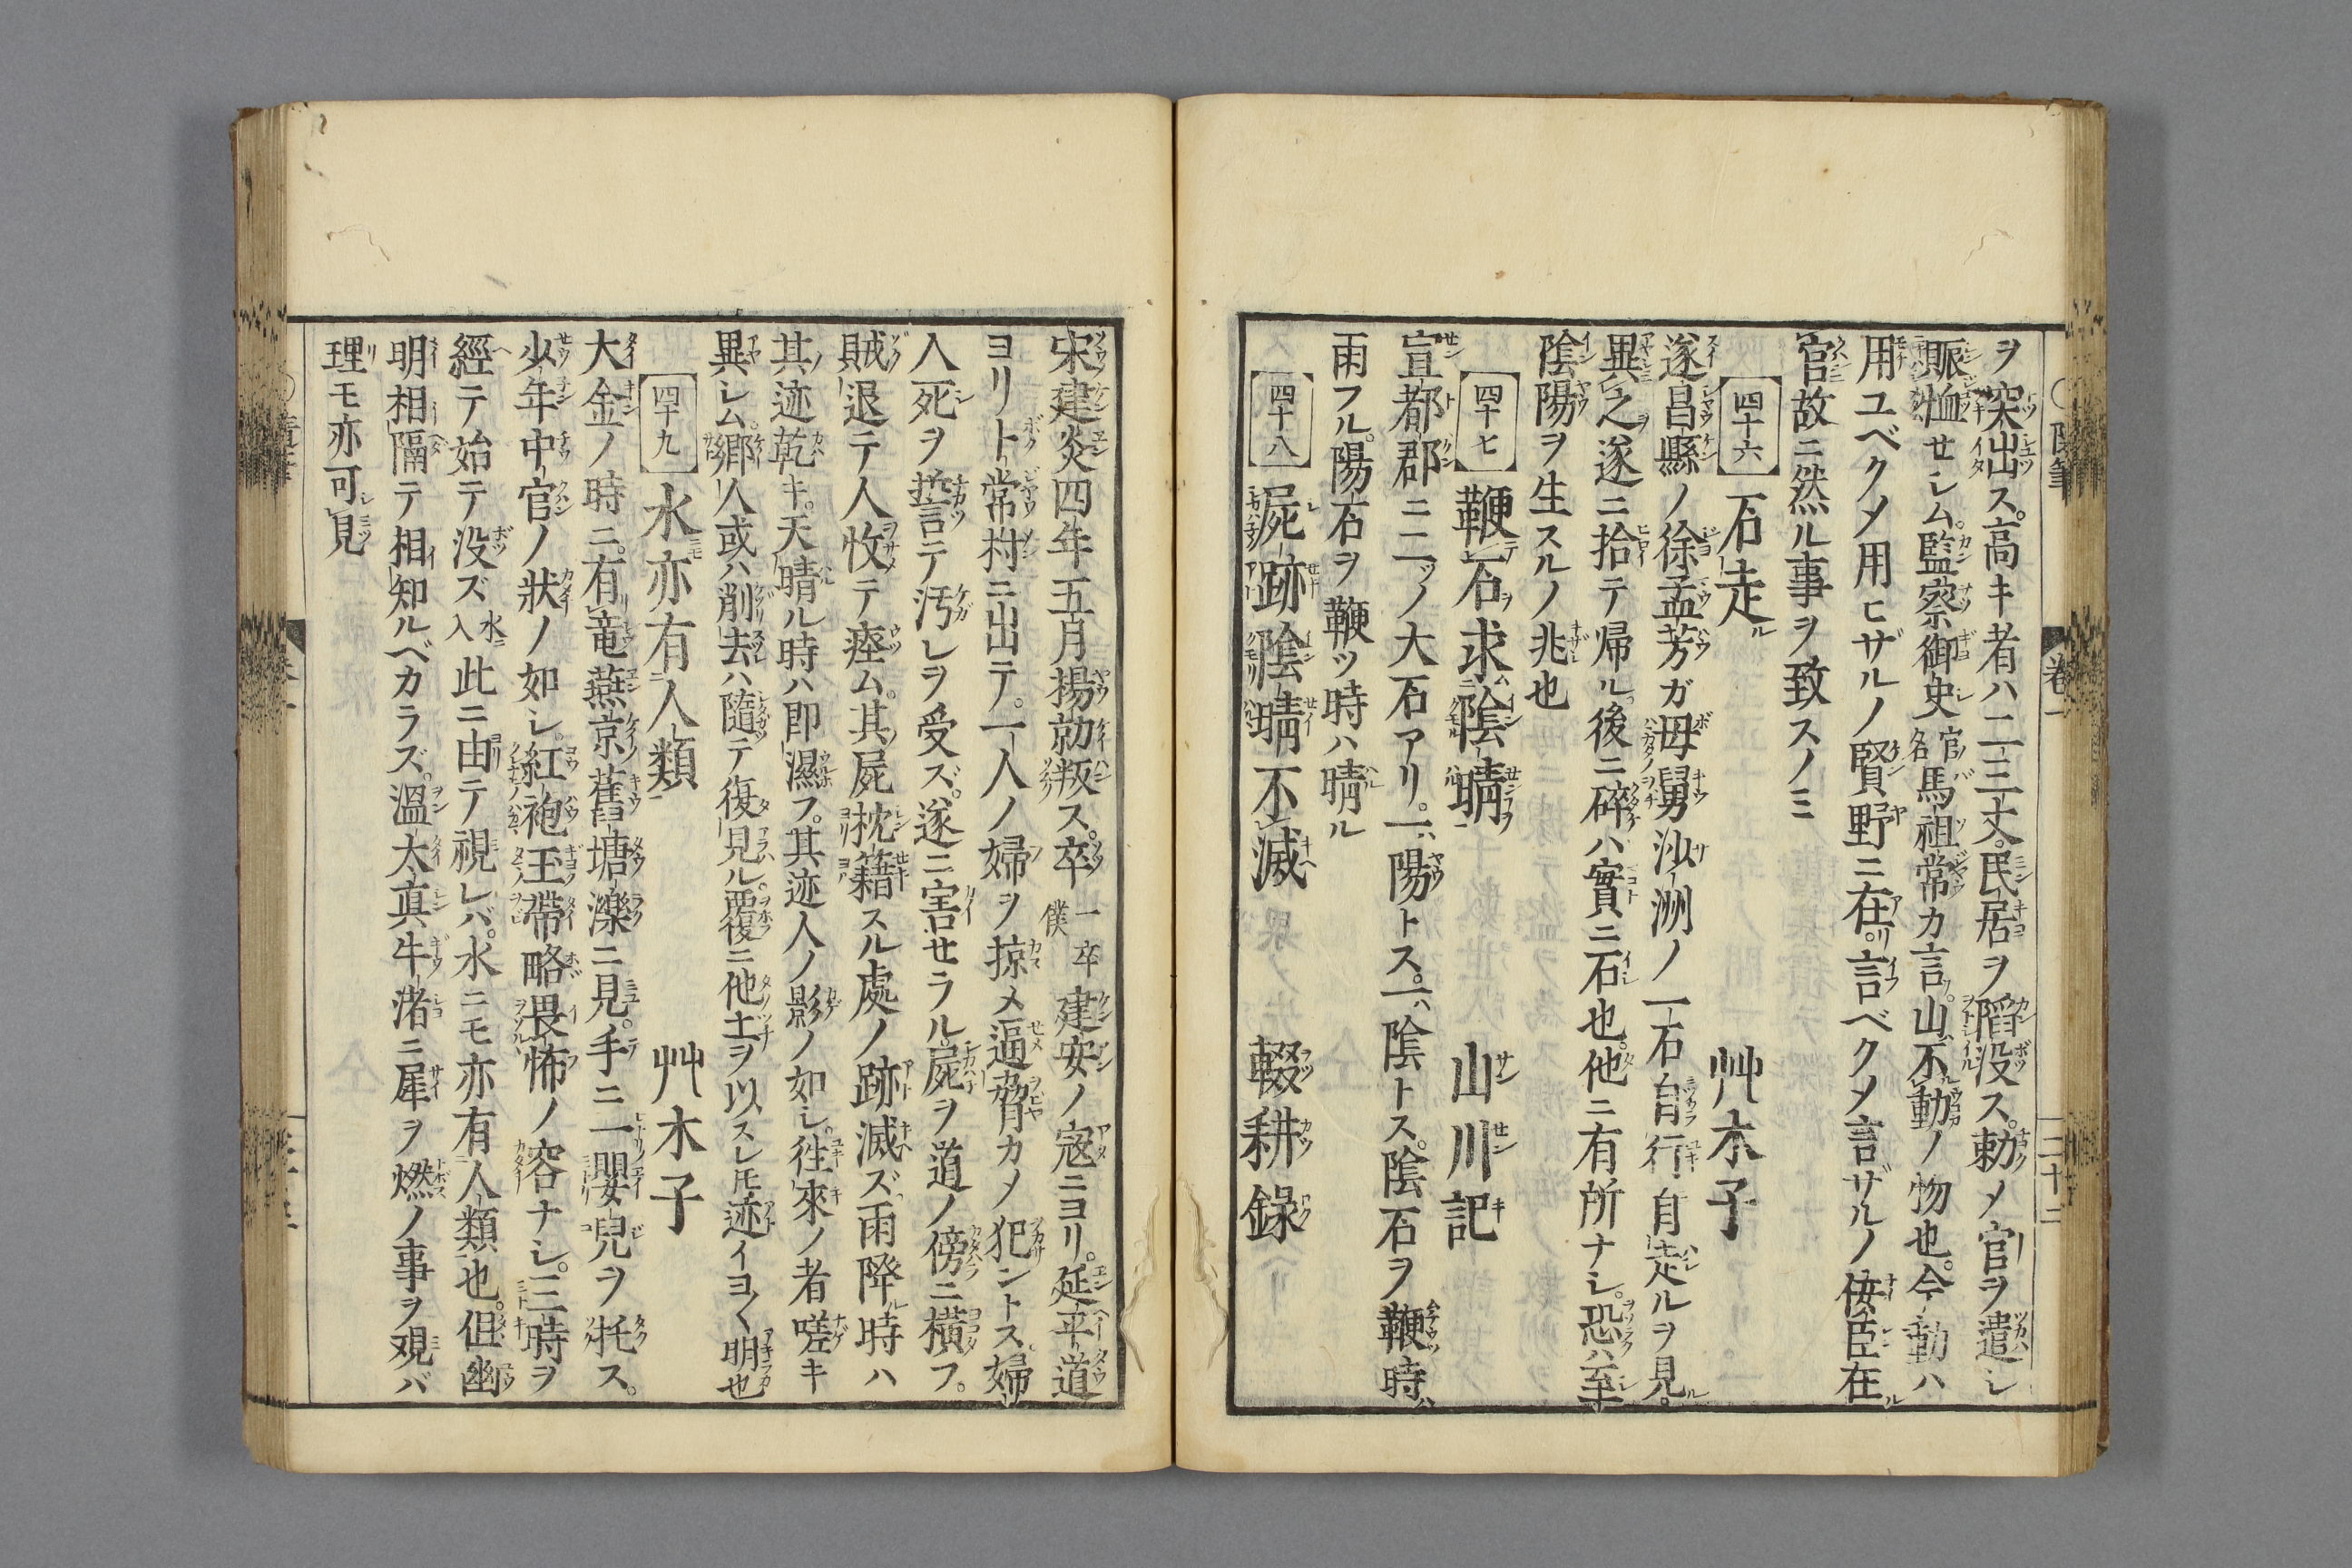 ヲ突出ス。高キ者ハ二三丈。民居ヲ陷没ス。勅メ官ヲ遣シ
賑恤セシム。監察御史官名馬祖常カ言。山不動ノ物也。今動ハ
用ユベクメ用ヒザルノ賢野ニ在。言ベクメ言ザルノ佞臣在
官故ニ然ル事ヲ致スノミ
四十六 石走ル 艸木子
遂昌縣ノ徐孟芳ガ母舅沙洲ノ一石自行自走ルヲ見。
異之遂ニ拾テ帰ル。後ニ碎ハ實ニ石也。他ニ有所ナシ。恐ハ至
陰陽ヲ生スルノ兆也
四十七 鞭石求陰晴 山川記
宣都郡ニ二ツノ大石アリ。一ハ陽トス。一ハ陰トス。陰石ヲ鞭時ハ
雨フル。陽石ヲ鞭ツ時ハ晴ル
四十八 屍跡陰晴不滅 輟耕錄
宋建炎四年五月楊勍叛ス。卒一僕卒建安ノ寇ニヨリ。延平道
ヨリト常村ニ出テ。一人ノ婦ヲ掠メ逼脅カメ犯ントス。婦
人死ヲ誓テ汚レヲ受ズ。遂ニ害セラル屍ヲ道ノ傍ニ横フ。
賊退テ人收テ瘞ム。其屍枕籍スル處ノ跡滅ズ。雨降時ハ
其迹乾キ。天晴ル時ハ即濕フ。其迹人ノ影ノ如シ。往來ノ者嗟キ
異シム。郷人或ハ削去ハ隨テ復見ル。覆ニ他土ヲ以スレ𪜈迹イヨ〱明也
四十九 水亦有人類 艸木子
大金ノ時ニ。有竜燕京舊塘濼ニ見。手ニ一嬰兒ヲ托ス。
少年中官ノ狀ノ如シ。紅袍玉帶略畏怖ノ容ナシ。三時ヲ
經テ始テ没ズ水ニ入此ニ由テ視レバ。水ニモ亦有人類也。但幽
明相隔テ相知ルベカラズ。溫太真牛渚ニ犀ヲ燃ノ事ヲ覌バ
理モ亦可見